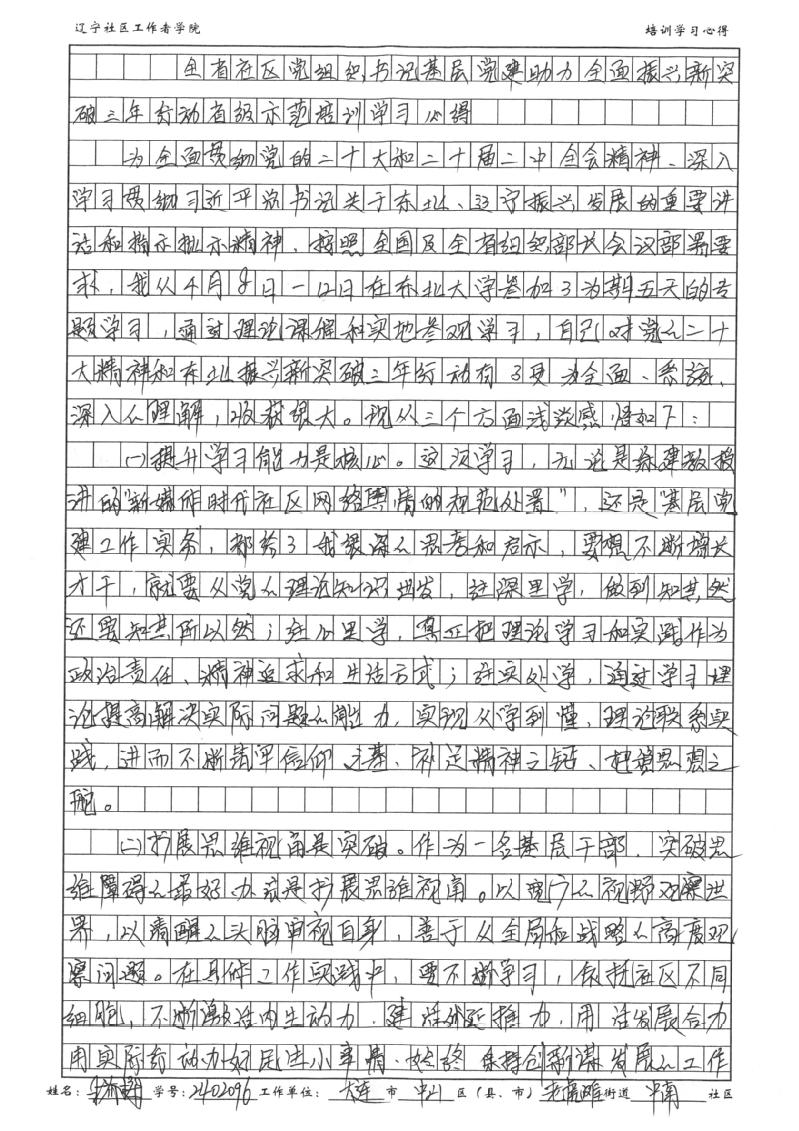 辽宁社区工作者学院 培训学习心得
全省社区党组织书记基层党建助力全面振兴新突
破三年行动省级示范培训学习心得
为全面贯彻党的二十大和二十届二中全会精神、深入
学习贯彻习近平总书记关于东北、辽宁振兴发展的重要讲
话和指示批示精神,按照全国及全省组织部长会议部署要
求,我从4月8日—12日在东北大学参加了为期五天的专
题学习,通过理论课程和实地参观学习,自己对党的二十
大精神和东北振兴新突破三年行动有了更为全面、系统、
深入的理解,收获很大。现从三个方面浅谈感悟如下:
(一)提升学习能力是核心。这次学习,无论是秦建教授
讲的"新媒体时代社区网络舆情的规范处置",还是"基层党
建工作实务,都给了我很深的思考和启示,要想不断增长
才干,就要从党的理论知识出发,往深里学,做到知其然
还要知其所以然;往心里学,真正把理论学习和实践作为
政治责任、精神追求和生活方式;往实处学,通过学习理
论提高解决实际问题的能力,实现从学到懂,理论联系实
践,进而不断筑牢信仰之基、补足精神之钙、把稳思想之
舵。
(二)扩展思维视角是突破。作为一名基层干部,突破思
维障碍的最好办法是扩展思维视角。以宽广的视野观察世
界,以清醒的头脑审视自身,善于从全局和战略的高度观
察问题。在具体工作实践中,要不断学习,依托社区不同
细胞,不断激活内生动力,建活外延推力,用活发展合力
用实际行动办好民生小事情、始终坚持创新谋发展的工作
姓名: 学号:2402096 工作单位: 大连 市 中山 区(县、市) 老虎滩 街道 中南 社区